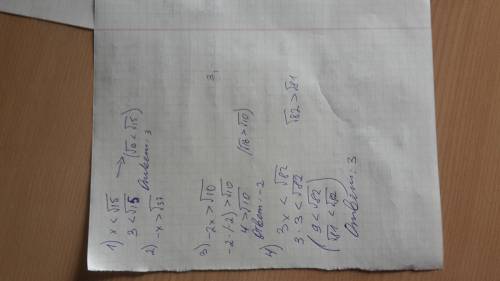 1) x < √15
3 < √15 → (√10 < √15)
Ответ: 3
2) -x > √37
3) -2x > √10 3,
-2·(-2) > √10
4 > √10 (√16 > √10)
Ответ: -2
4) 3x < √82
3·3 < √82 √82 > √81
(9 < √82
√81 < √82)
Ответ: 3